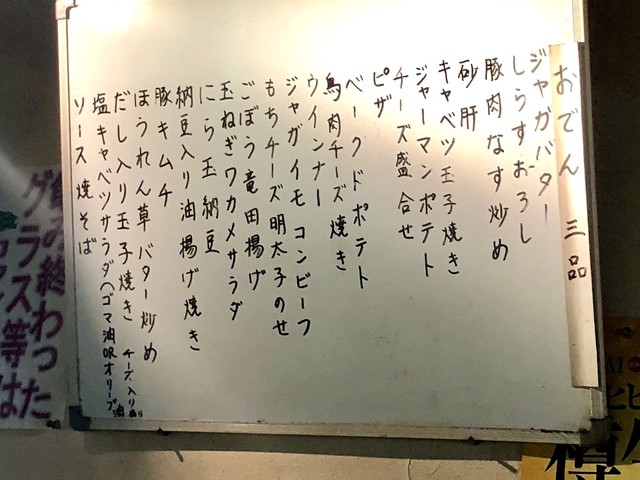 おでん 三品
ジャガバター
しらすおろし
豚肉なす炒め
砂肝
キャベツ玉子焼き
ジャーマンポテト
チーズ盛合せ
ピザ
ベークドポテト
鳥肉チーズ焼き
ウインナー
ジャガイモコンビーフ
もちチーズ明太子のせ
ごぼう竜田揚げ
玉ねぎワカメサラダ
にら玉納豆
納豆入り油揚げ焼き
豚キムチ
ほうれん草バター炒め
だし入り玉子焼き チーズ入り有り
塩キャベツサラダヘゴマ油ORオリーブ油
ソース焼そば
飲み終わった
グラス等は